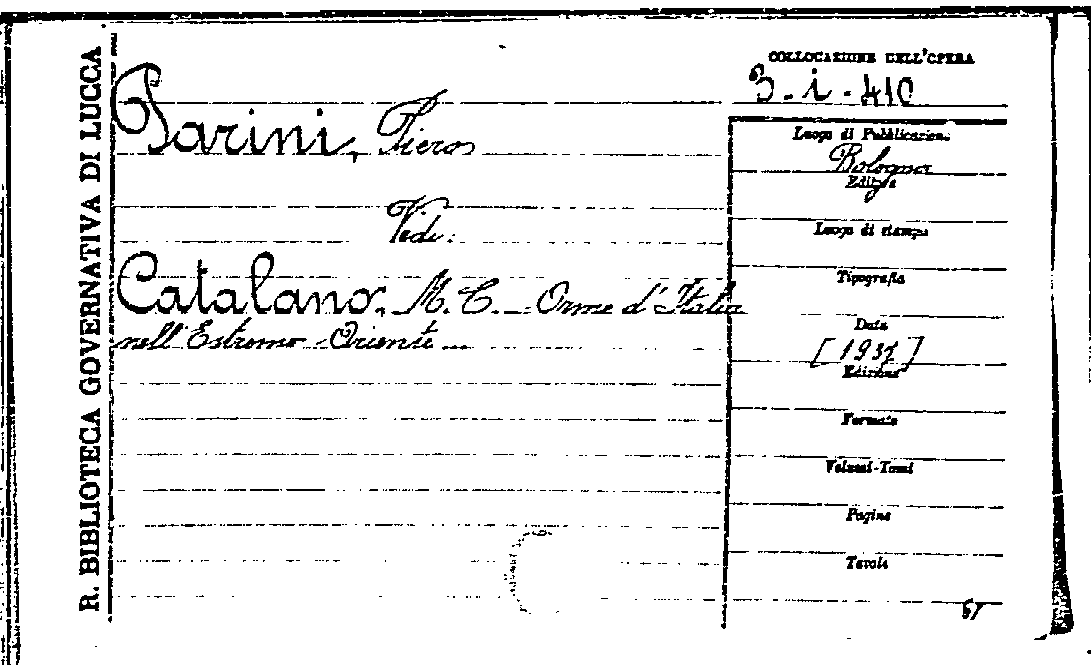 R. BIBLIOTECA GOVERNATIVA DI LUCCA
COLLOCAZIONE DELL'OPERA
3. i. 410
Parini, Piero
Vedi:
Catalano, M. C. - Orme d'Italia
nell'Estremo Oriente...
Luogo di Pubblicazione
Bologna
Editore
Luogo di stampa
Tipografia
Data
Edizione
Formato
Volumi-Tomi
Pagine
Tavole